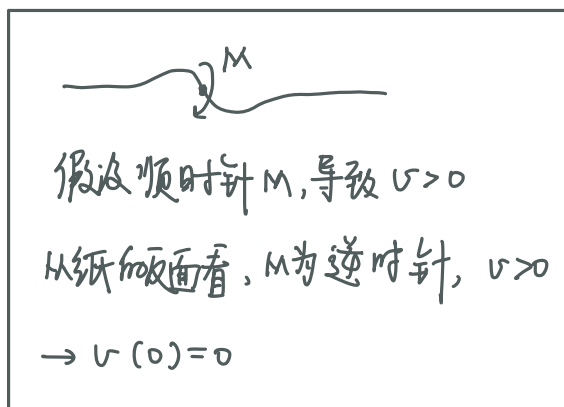 M
假设顺时针M,导致 v>0
从纸的反面看,M为逆时针, v>0
→ v(0)=0